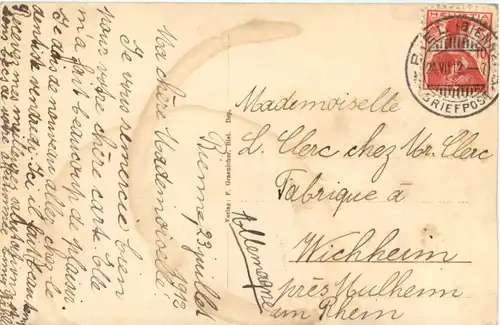 Bienne 23 juillet
1912
Ma chère Mademoiselle!
Je vous remercie bien
pour votre chère carte. Elle
m'a fait beaucoup de plaisir.
Je dois de nouveau aller chez le
dentiste vendredi. Ici il fait
Recevez mes meilleures
Verlag: F. Graenicher, Biel. Dep.
HELVETIA
10
BIEL (BIENNE)
24.VII.12.-7
BRIEFPOST
Mademoiselle
L. Clerc chez Mr. Clerc
Fabrique à
Wichheim
près Mulheim
am Rhein
Allemagne